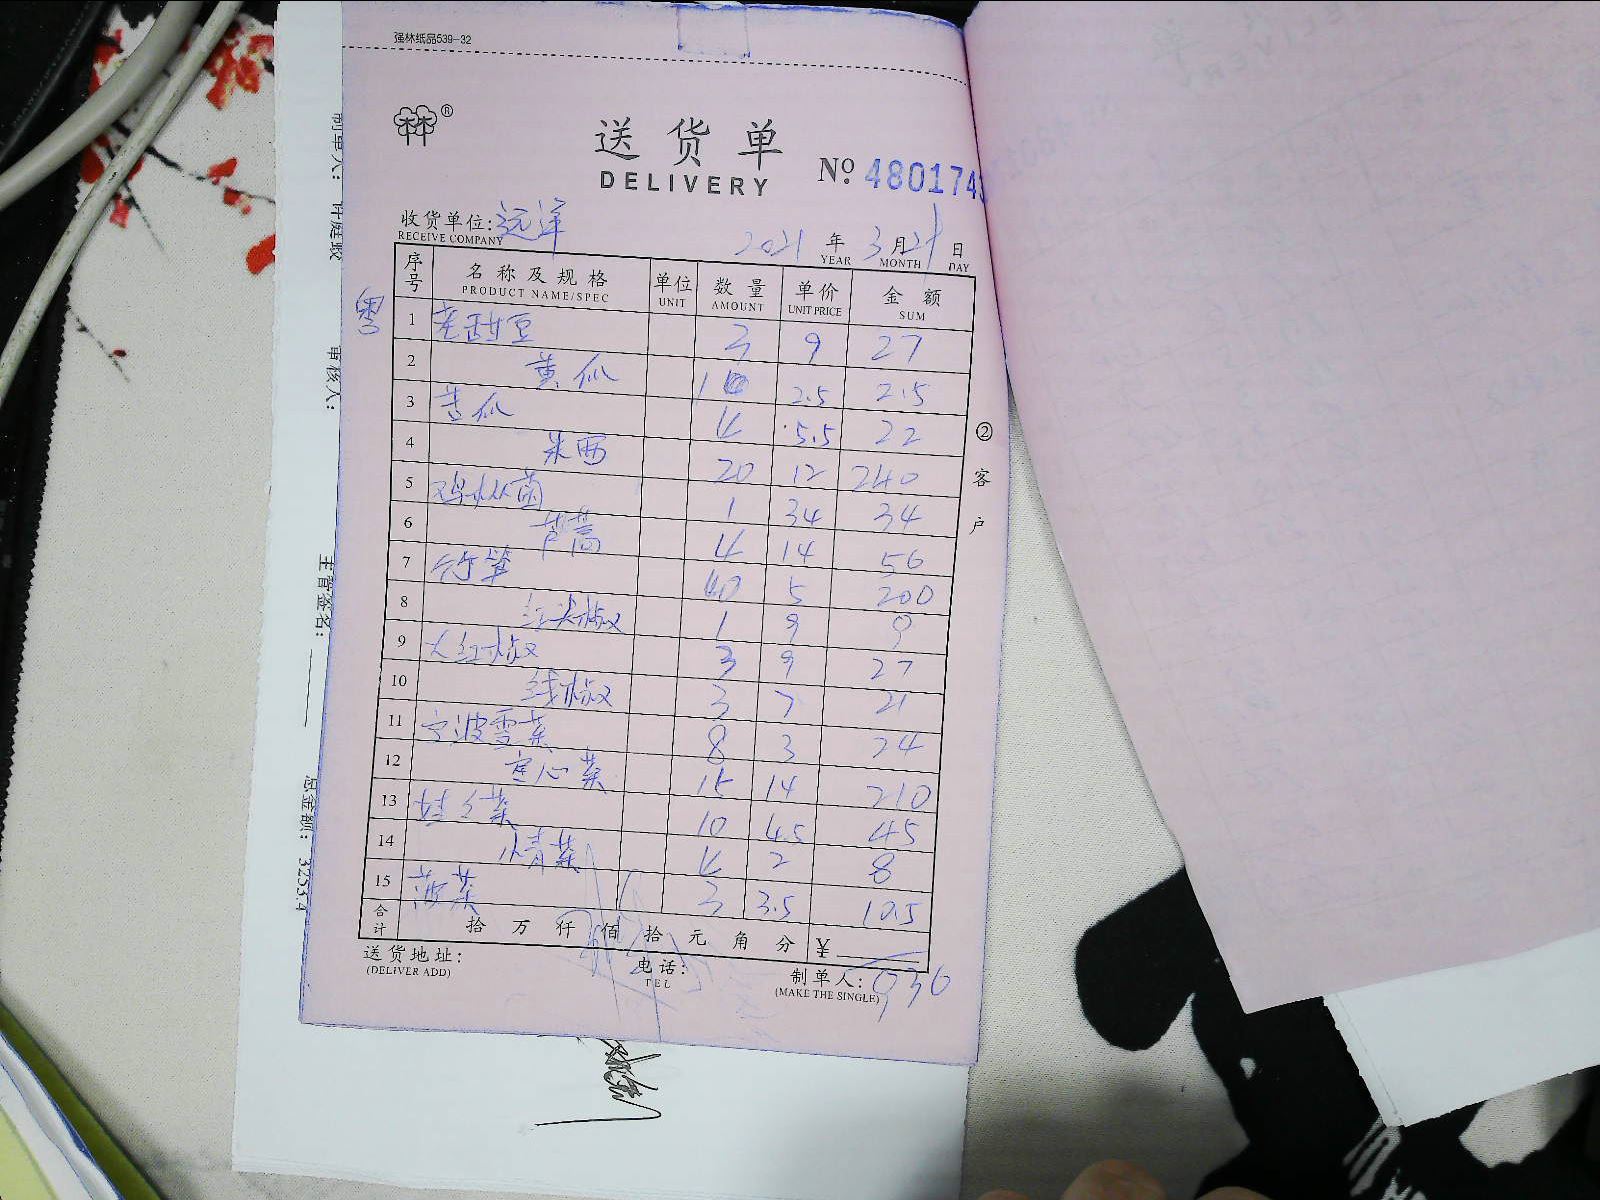 强林纸品539-32
林®
送货单
DELIVERY
No. 480174
收货单位: 远洋
RECEIVE COMPANY
2021 年 3 月 21 日
YEAR MONTH DAY
序号 名称及规格 单位 数量 单价 金额
PRODUCT NAME/SPEC UNIT AMOUNT UNIT PRICE SUM
1 甜豆 3 9 27
2 黄瓜 1 2.5 2.5
3 苦瓜 4 5.5 22
4 米西 20 12 240
5 鸡枞菌 1 34 34
6 芦蒿 4 14 56
7 竹笋 40 5 200
8 红尖椒 1 9 9
9 大红椒 3 9 27
10 线椒 3 7 21
11 宁波雪菜 8 3 24
12 空心菜 15 14 210
13 娃娃菜 10 4.5 45
14 小青菜 4 2 8
15 菠菜 3 3.5 10.5
合计 拾 万 仟 佰 拾 元 角 分 ¥
送货地址:
(DELIVER ADD)
电话:
TEL
制单人: 936
(MAKE THE SINGLE)
②客户
制单人: 许庭
审核人:
主管签名:
总金额: 3253.4